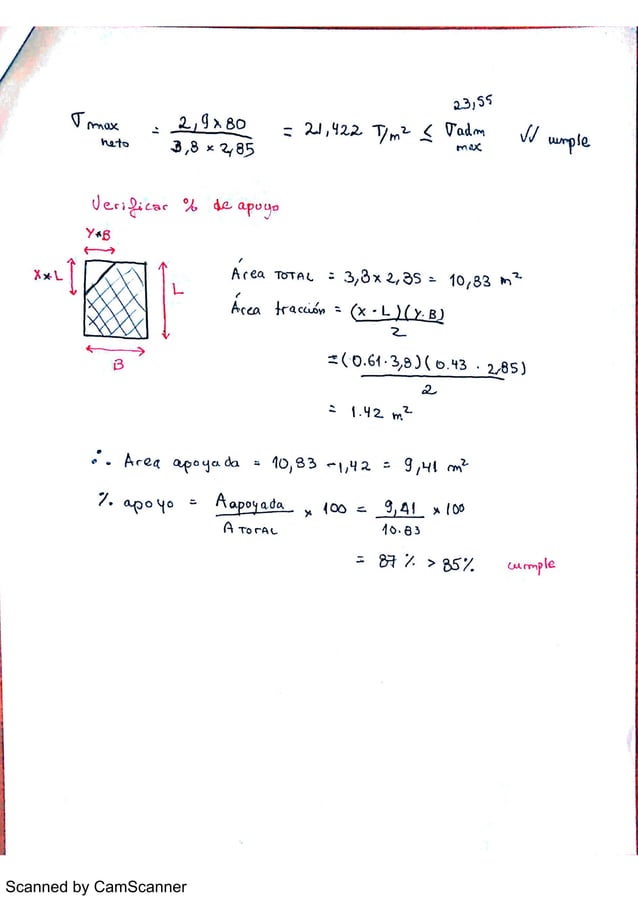 23,55
σmax neto = 2,9 x 80 / 3,8 x 2,85 = 21,422 T/m² ≤ σadm max √√ cumple
Verificar % de apoyo
Y*B
X*L
L
B
Área TOTAL = 3,8 x 2,85 = 10,83 m²
Área tracción = (x · L)(Y·B) / 2
= (0.61·3,8)(0.43 · 2,85) / 2
= 1.42 m²
∴ Area apoyada = 10,83 - 1,42 = 9,41 m²
% apoyo = Aapoyada / A TOTAL x 100 = 9,41 / 10.83 x 100
= 87 % > 85% cumple
Scanned by CamScanner